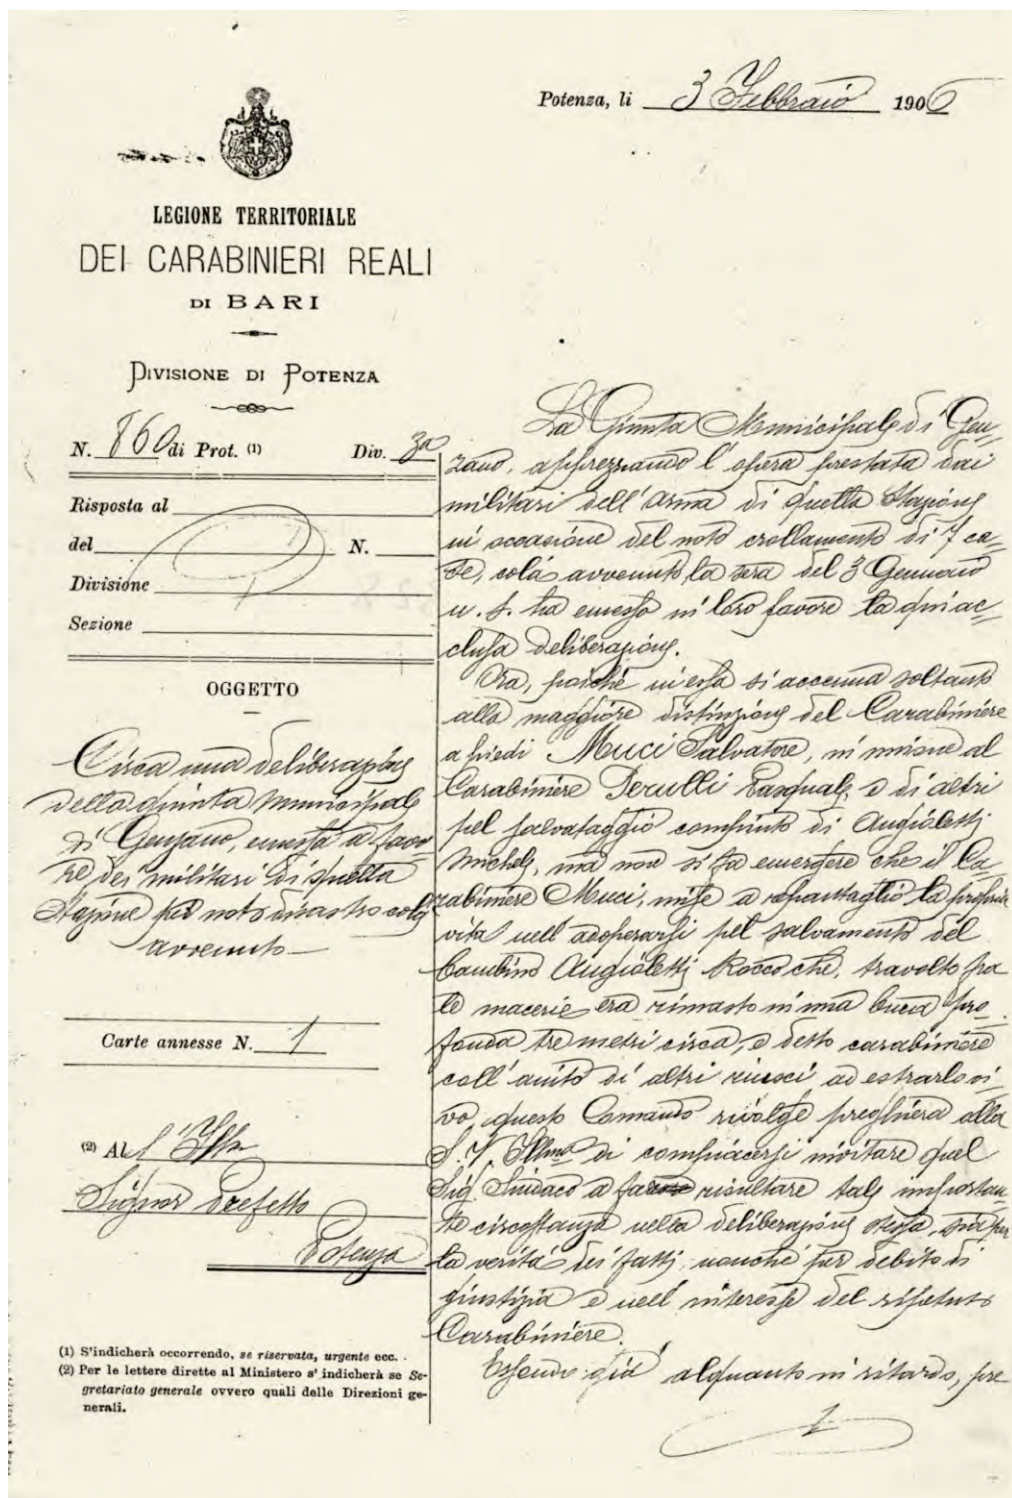 Potenza, li 3 Febbraio 1906
LEGIONE TERRITORIALE
DEI CARABINIERI REALI
DI BARI
DIVISIONE DI POTENZA
N. 860 di Prot. (1) Div. 3a
Risposta al
del N.
Divisione
Sezione
OGGETTO
Circa una deliberazione
della Giunta Municipale
di Genzano, emessa a favo=
re dei militari di quella
Stazione pel noto disastro colà
avvenuto
Carte annesse N. 1
(2) Al l'Illmo
Signor Prefetto
Potenza
(1) S'indicherà occorrendo, se riservata, urgente ecc.
(2) Per le lettere dirette al Ministero s'indicherà se Se-
gretariato generale ovvero quali delle Direzioni ge-
nerali.
La Giunta Municipale di Gen=
zano, apprezzando l'opera prestata dai
militari dell'arma di quella Stazione
in occasione del noto crollamento di 7 ca=
se, colà avvenuto la sera del 3 Gennaio
u. s. ha emesso in loro favore la qui ac=
clusa deliberazione.
Ora, poiché in essa si accenna soltanto
alla maggiore distinzione del Carabiniere
a piedi Muci Salvatore, in unione al
Carabiniere Perulli Pasquale, e di altri
pel salvataggio compiuto di Angioletti
Michele, ma non si fa emergere che il Ca=
rabiniere Muci, mise a repentaglio la propria
vita nell'adoperarsi pel salvamento del
bambino Angioletti Rocco che, travolto fra
le macerie era rimasto in una buca pro=
fonda tre metri circa, e detto carabiniere
coll'aiuto di altri riuscì ad estrarlo vi=
vo, questo Comando rivolge preghiera alla
S. V. Illma di compiacersi invitare quel
Sig. Sindaco a far risultare tale importan=
te circostanza nella deliberazione stessa, sia per
la verità dei fatti, nonché per debito di
giustizia e nell'interesse del ripetuto
Carabiniere.
Essendo già alquanto in ritardo, pre